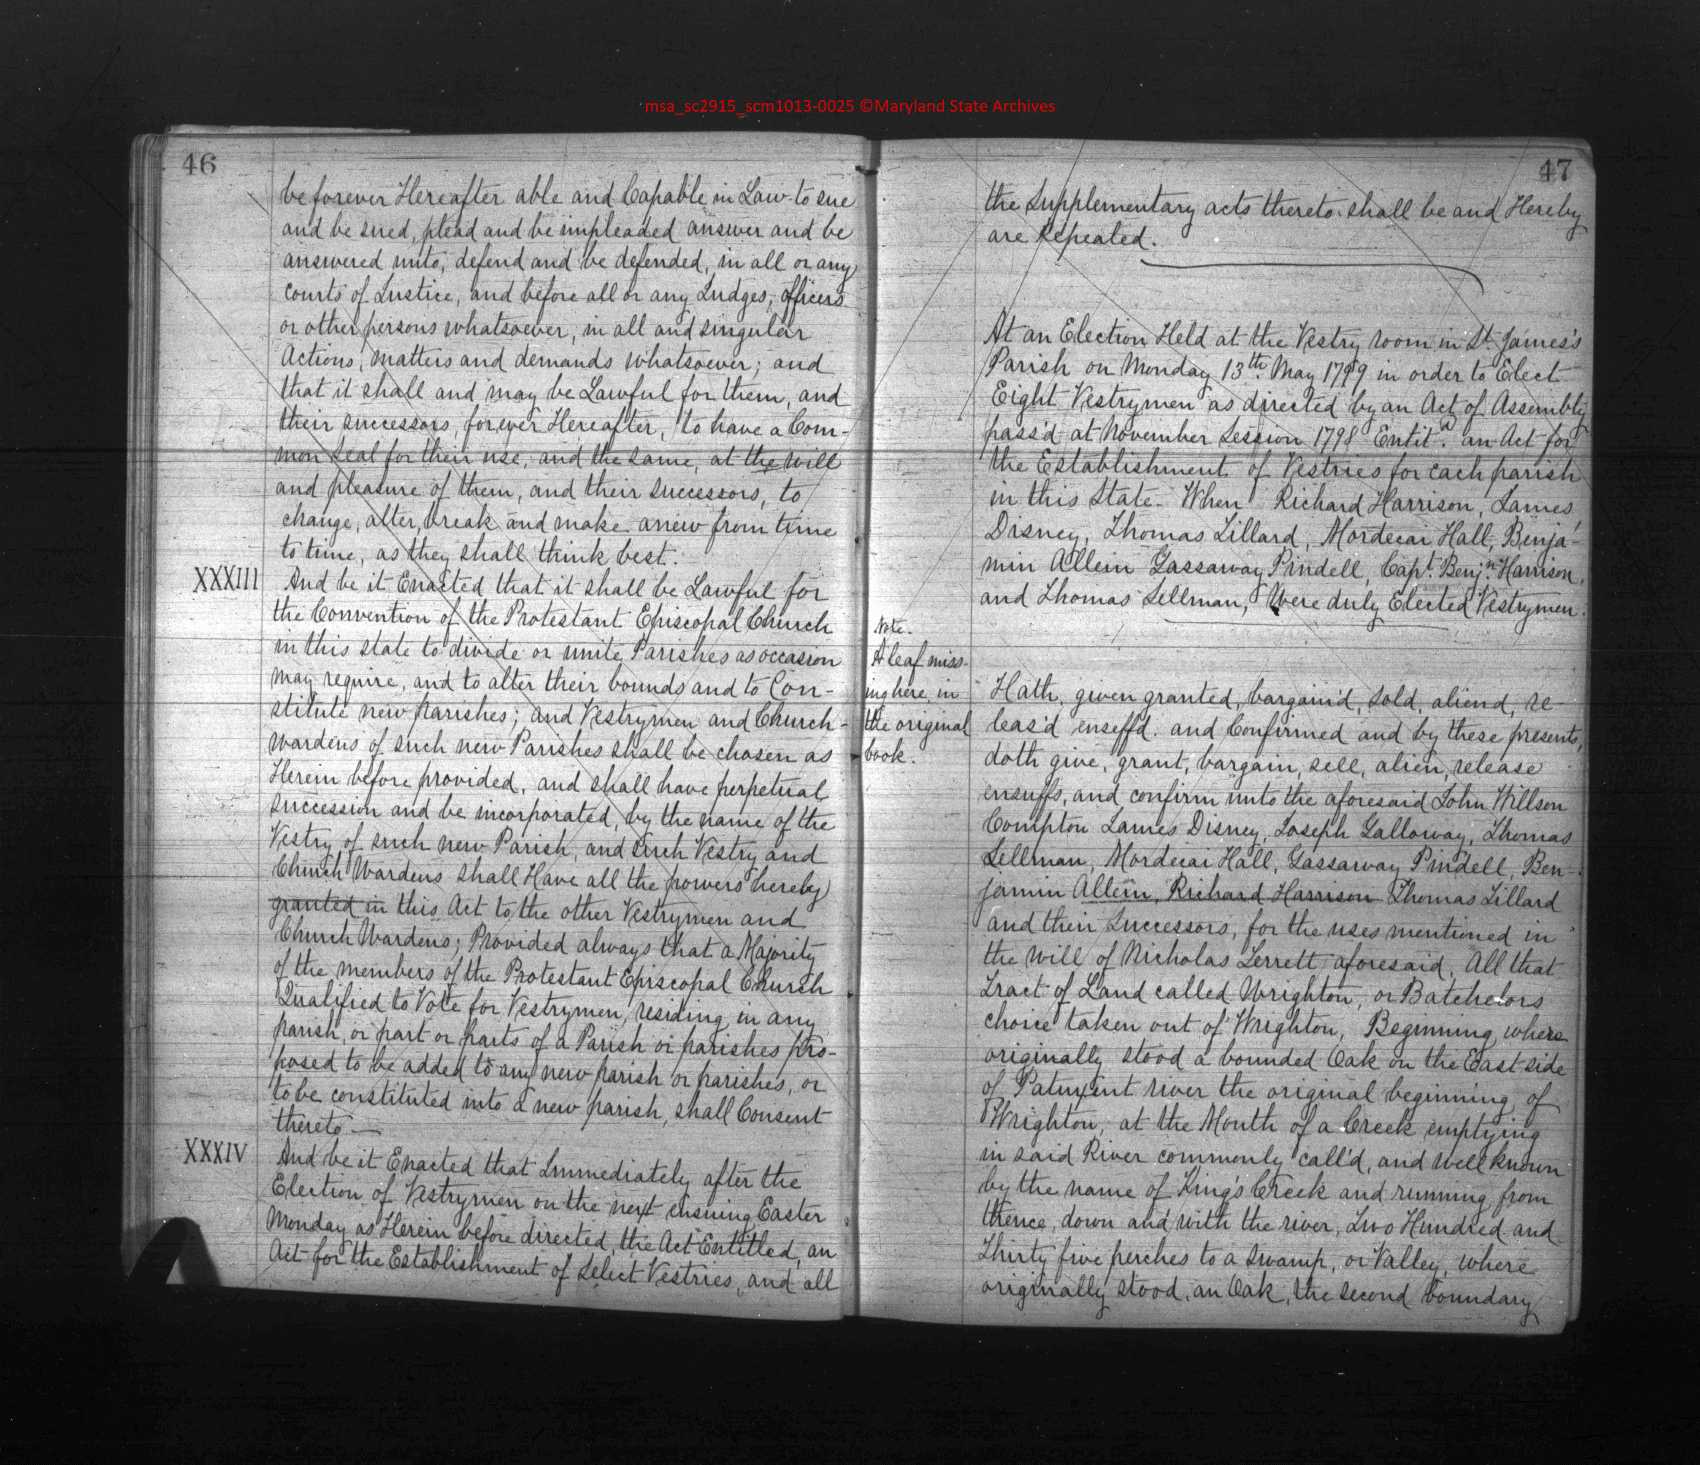 msa_sc2915_scm1013-0025 ©Maryland State Archives
46
be forever Hereafter able and Capable in Law to sue
and be sued, plead and be impleaded answer and be
answered unto, defend and be defended, in all or any
courts of Justice, and before all or any Judges, officers
or other persons whatsoever, in all and singular
Actions, matters and demands whatsoever; and
that it shall and may be Lawful for them, and
their successors, forever Hereafter, to have a Com-
mon Seal for their use, and the same, at the will
and pleasure of them, and their successors, to
change, alter, break and make anew from time
to time, as they shall think best.
XXXIII
And be it Enacted that it shall be Lawful for
the Convention of the Protestant Episcopal Church
in this state to divide or unite Parishes as occasion
may require, and to alter their bounds and to Con-
stitute new parishes; and Vestrymen and Church-
wardens of such new Parishes shall be chosen as
Herein before provided, and shall have perpetual
succession and be incorporated, by the name of the
Vestry of such new Parish, and such Vestry and
Church Wardens shall Have all the powers hereby
granted in this Act to the other Vestrymen and
Church Wardens; Provided always that a Majority
of the members of the Protestant Episcopal Church
Qualified to Vote for Vestrymen, residing in any
parish, or part or parts of a Parish or parishes pro-
posed to be added to any new parish or parishes, or
to be constituted into a new parish, shall Consent
thereto —
XXXIV
And be it Enacted that Immediately after the
Election of Vestrymen on the next ensuing Easter
Monday as Herein before directed, the Act Entitled, an
Act for the Establishment of Select Vestries, and all
47
the Supplementary acts thereto shall be and Hereby
are Repealed.
At an Election Held at the Vestry room in St. James's
Parish on Monday 13th May 1799 in order to Elect
Eight Vestrymen as directed by an Act of Assembly
pass'd at November Session 1798 Entit.d an Act for
the Establishment of Vestries for each parish
in this State. When Richard Harrison, James
Disney, Thomas Tillard, Mordecai Hall, Benja-
min Allein Gassaway Pindell, Capt. Benjn. Harrison,
and Thomas Sellman, Were duly Elected Vestrymen.
Note.
A leaf miss-
ing here in
the original
book.
Hath, given granted, bargain'd, sold, aliend, re-
leas'd enseffd. and Confirmed and by these presents,
doth give, grant, bargain, sell, alien, release
ensuffs, and confirm unto the aforesaid John Willson
Compton James Disney, Joseph Galloway, Thomas
Sellman, Mordecai Hall, Gassaway Pindell, Ben-
jamin Allein, Richard Harrison Thomas Tillard
and their Successors, for the uses mentioned in
the will of Nicholas Terrett aforesaid. All that
Tract of Land called Wrighton, or Batchelors
choice taken out of Wrighton, Beginning where
originally stood a bounded Oak on the East side
of Patuxent river the original beginning of
Wrighton, at the Mouth of a Creek emptying
in said River commonly call'd, and well known
by the name of King's Creek and running from
thence, down and with the river, Two Hundred and
Thirty five perches to a swamp, or Valley, where
originally stood, an Oak, the second boundary